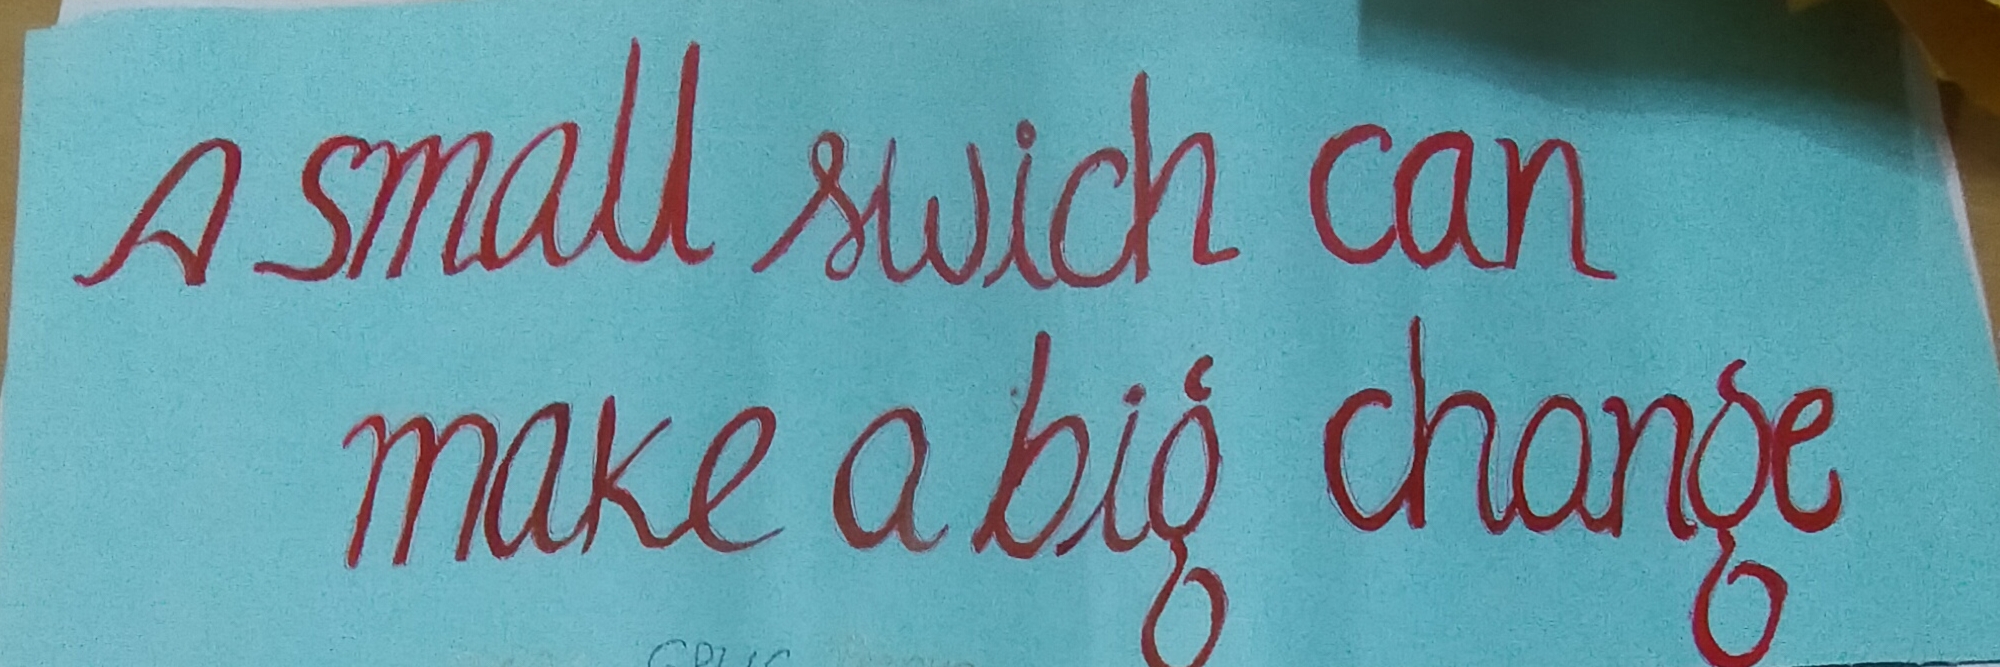 A small swich can
make a big change